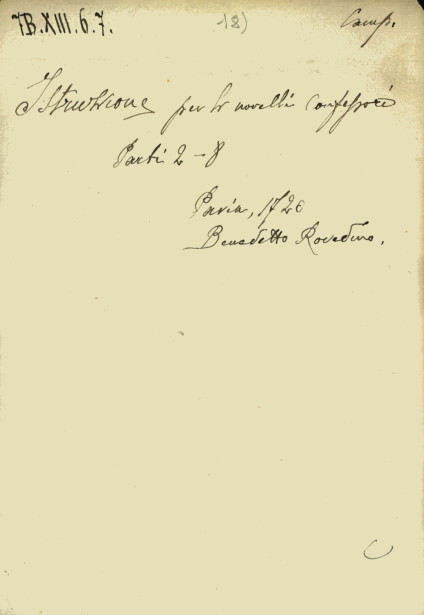 7B.XIII.6.7. 18) Camp.
Istruzione per li novelli Confessori
Parti 2 - 8
Pavia, 1720
Benedetto Rovedino.